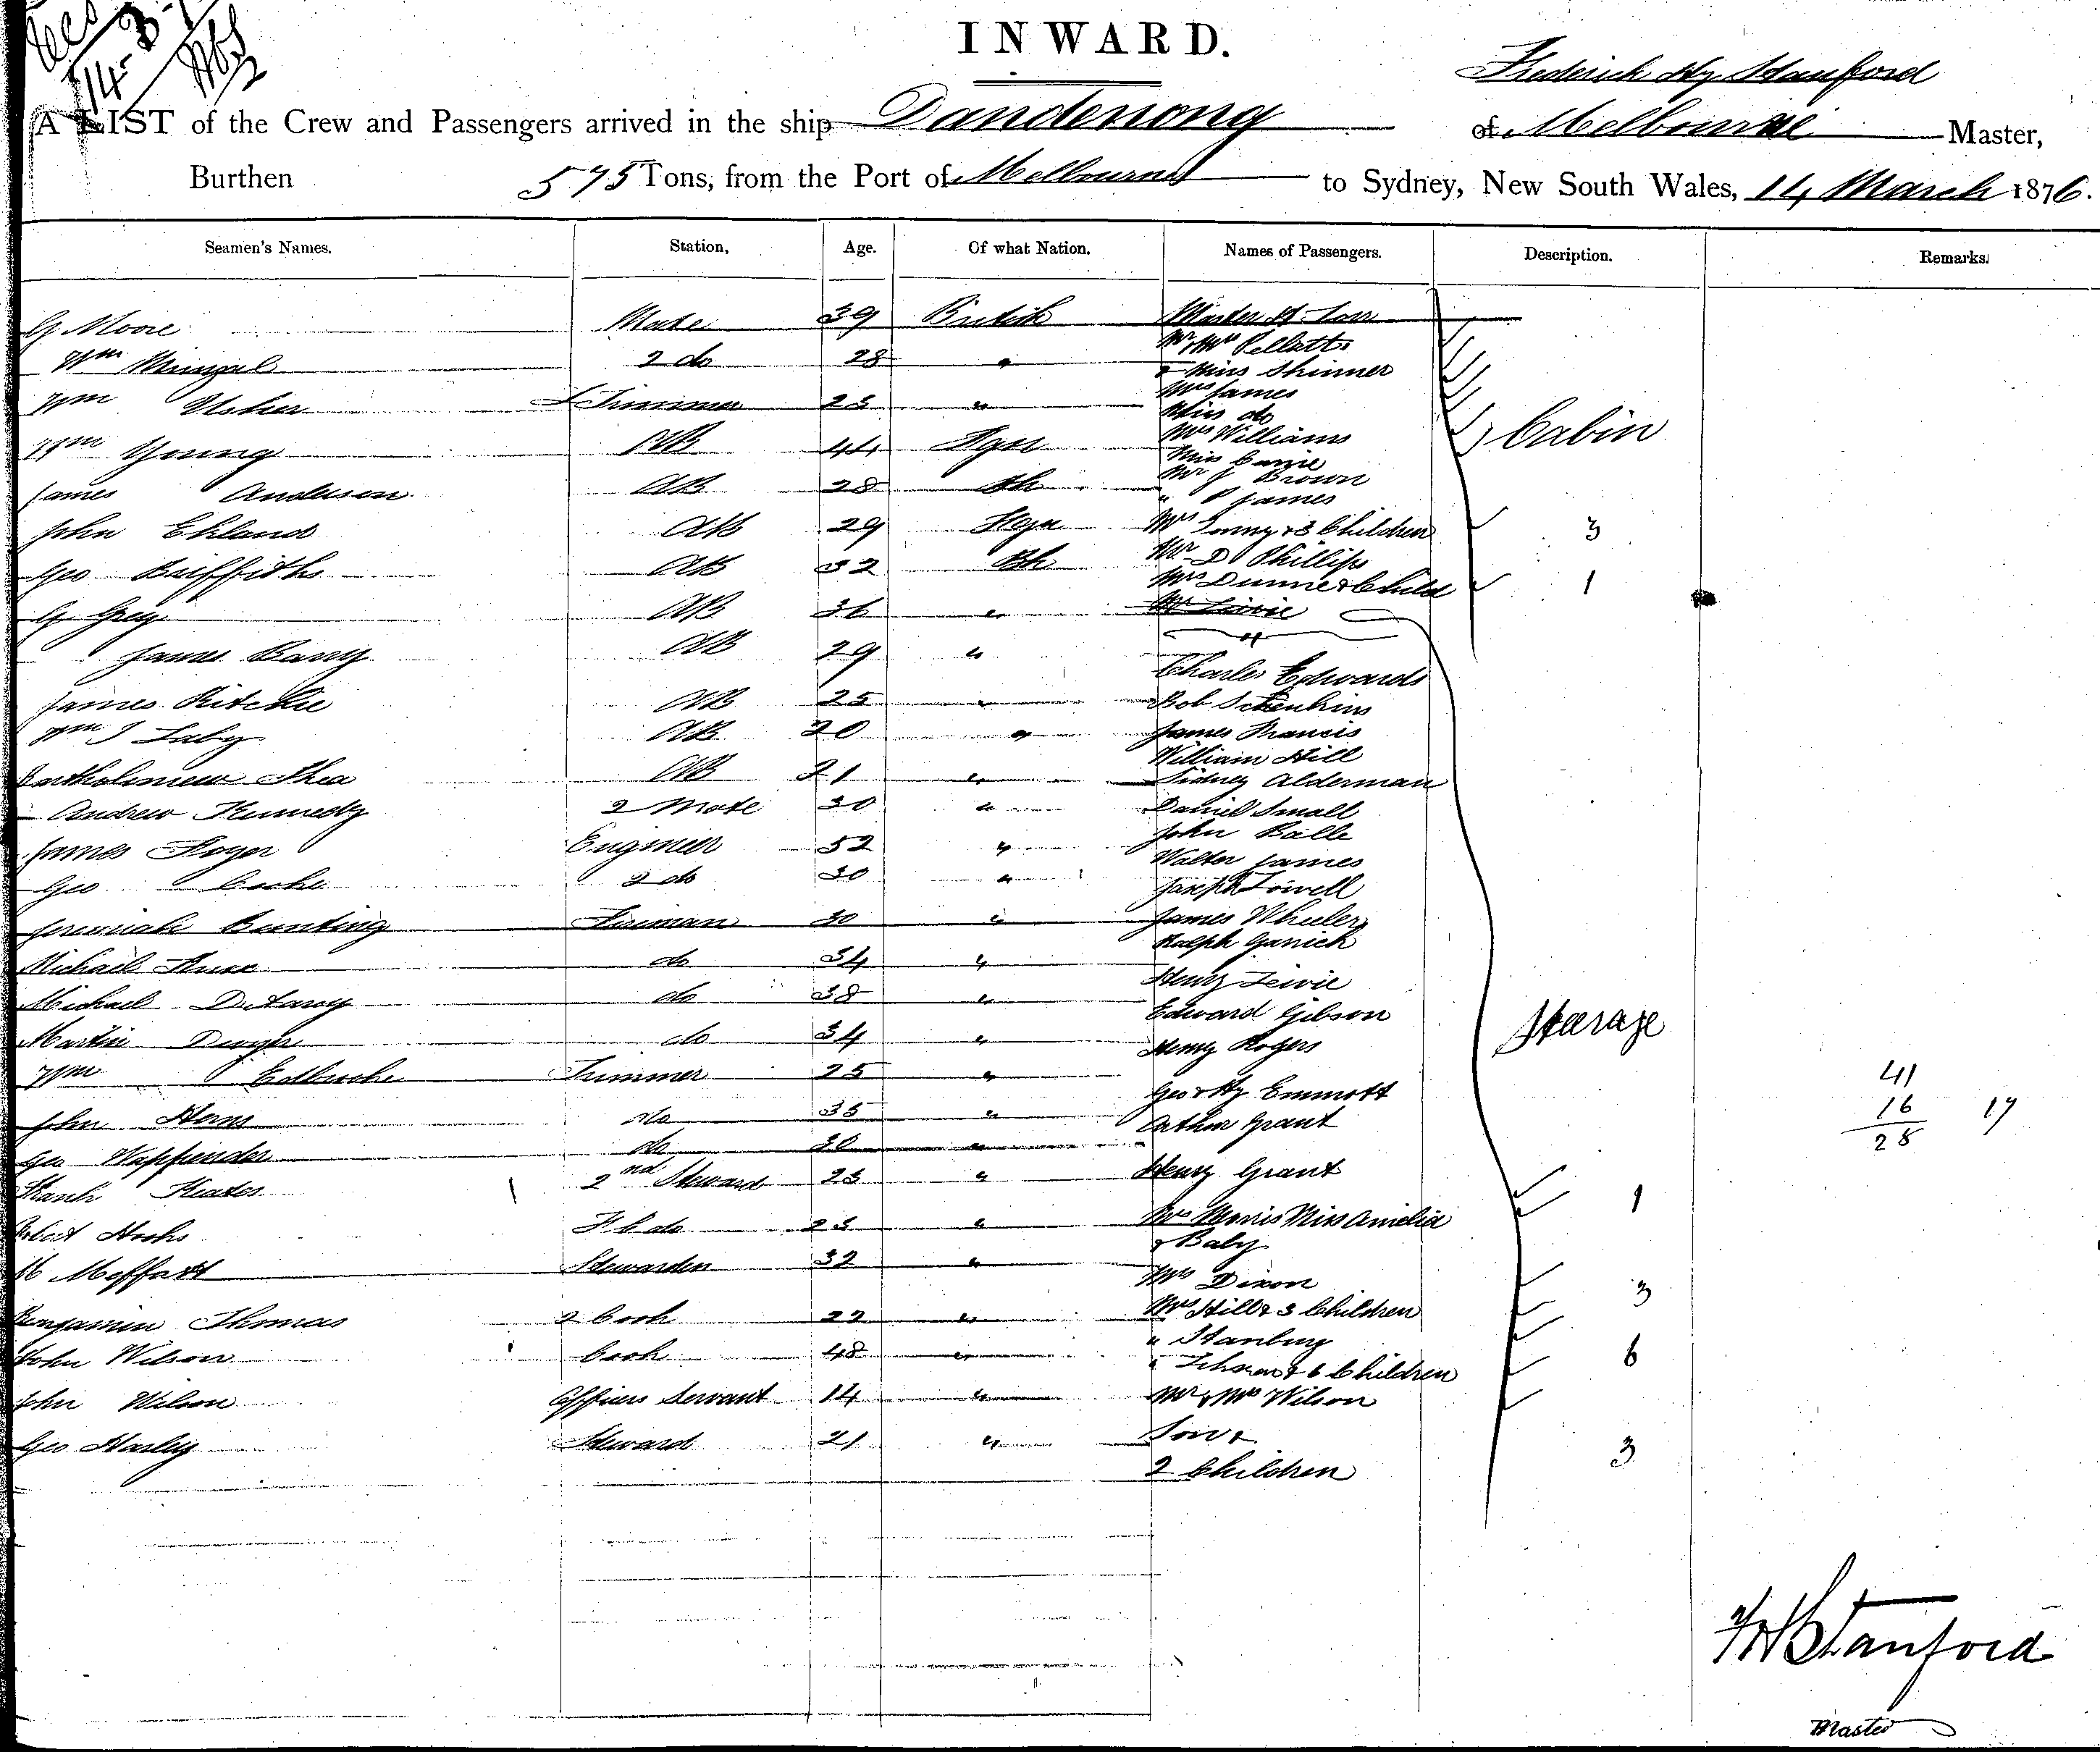 INWARD.
Frederick Hy Stanford
A LIST of the Crew and Passengers arrived in the ship Dandenong of Melbourne Master,
Burthen 575 Tons, from the Port of Melbourne to Sydney, New South Wales, 14 March 1876.
Seamen's Names. Station, Age. Of what Nation. Names of Passengers. Description. Remarks.
G Moore Mate 39 British
Mr & Mrs Pellatt
Wm 2 do 28 "
& Miss Skinner
Mrs James
Wm Usher 23 "
Miss do
Mrs Williams
Cabin
Wm Young AB 44
Miss
Mr J Brown
James Anderson AB 28 Bh
" P James
John Ekland AB 29
Mrs & 3 Children 3
Geo Griffiths AB 32 Bh
Mr D Phillips
Mrs Dunne & Child 1
G Greig AB 36 "
James Barry AB 29 "
Charles Edwards
James Ritchie AB 25 "
Bob
Wm J AB 20 "
James Francis
William Hill
Bartholomew Shea AB 21 "
Sidney Alderman
Andrew Kennedy 2 Mate 30 "
Daniel Small
John Balle
James Engineer 52 "
Walter James
Geo 2 do 30 "
Joseph Lowell
Jeremiah Bunting Fireman 30 "
James Wheeler
Ralph
Michael do 34 "
Henry
Michael Delany do 38 "
Edward Gibson
Martin Dwyer do 34 "
Henry Rogers
Stearage
Wm Trimmer 25 "
Geo & Hy Emmott
41
John do 35 "
Arthur Grant
16 17
Geo do 30 "
28
Frank 2nd Steward 23 "
Henry Grant
1
F C do 23 "
Mrs Morris Miss Amelia
& Baby
M Moffatt 32 "
Mrs Dixon
3
Benjamin Thomas 2 Cook 22 "
Mrs Hill & 3 Children
" Stanbury
John Wilson Cook 48 "
" & 6 Children 6
John Wilson Officers Servant 14 "
Mr & Mrs Wilson
Geo Harley Steward 21 "
Son &
3
2 Children
F H Stanford
Master